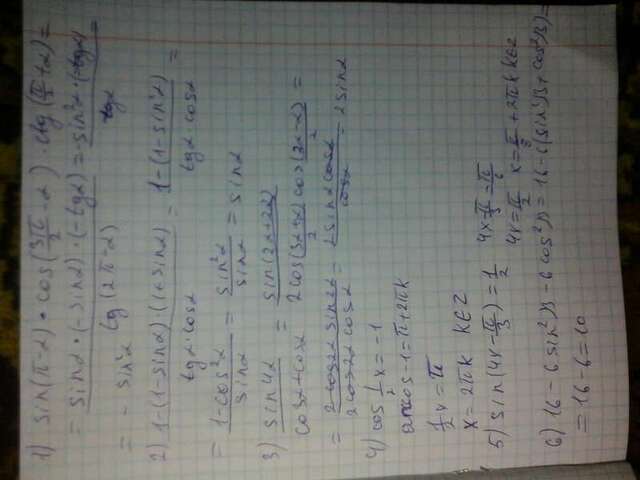 1) sin(π-α)·cos(3π/2-α)·ctg(π/2+α)=
= sinα·(-sinα)·(-tgα) = sin²α·
tg(2π-α) tgα
= - sin²α
2) 1-(1-sinα)(1+sinα) = 1-(1-sin²α) =
tgα·cosα tgα·cosα
= 1-cos²α = sin²α = sinα
sinα sinα
3) sin4α = sin(2α+2α)
2cos(3α+α) cos(3α-α) =
2 2
= 2cos2α sin2α = 2sinα cosα = 2sinα
2cos2α cosα cosα
4) cos 1/2 x = -1
-1 = π+2πk
1/2 x = π
x = 2πk k∈Z
5) sin(4x-π/3) = 1/2 4x-π/3=π/6
4x=π/2 x=π/8+2πk k∈Z
6) 16-6sin²β-6cos²β = 16-6(sin²β+cos²β)=
= 16-6=10